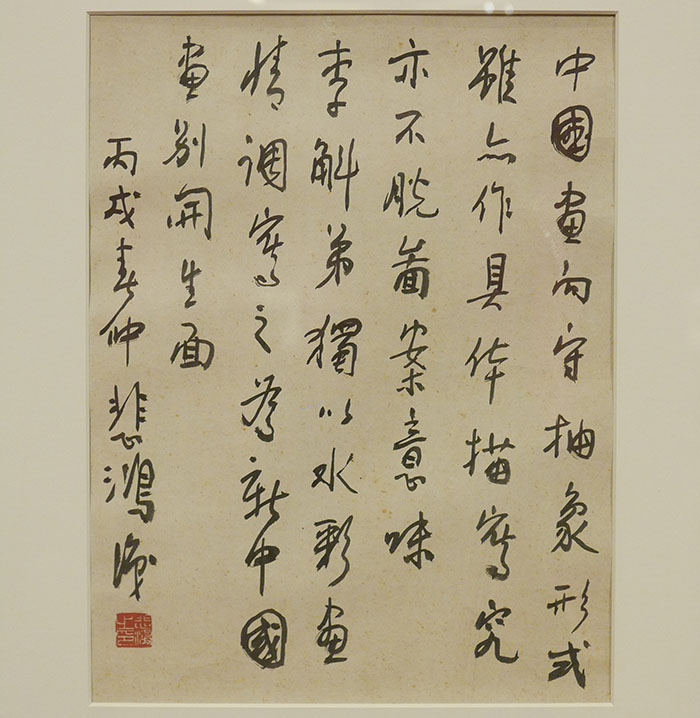 中國畫向守抽象形式
雖亦作具体描寫究
亦不脫啚案意味
李斛弟獨以水彩畫
情調寫之為新中國
畫別開生面
丙戌春仲悲鴻識